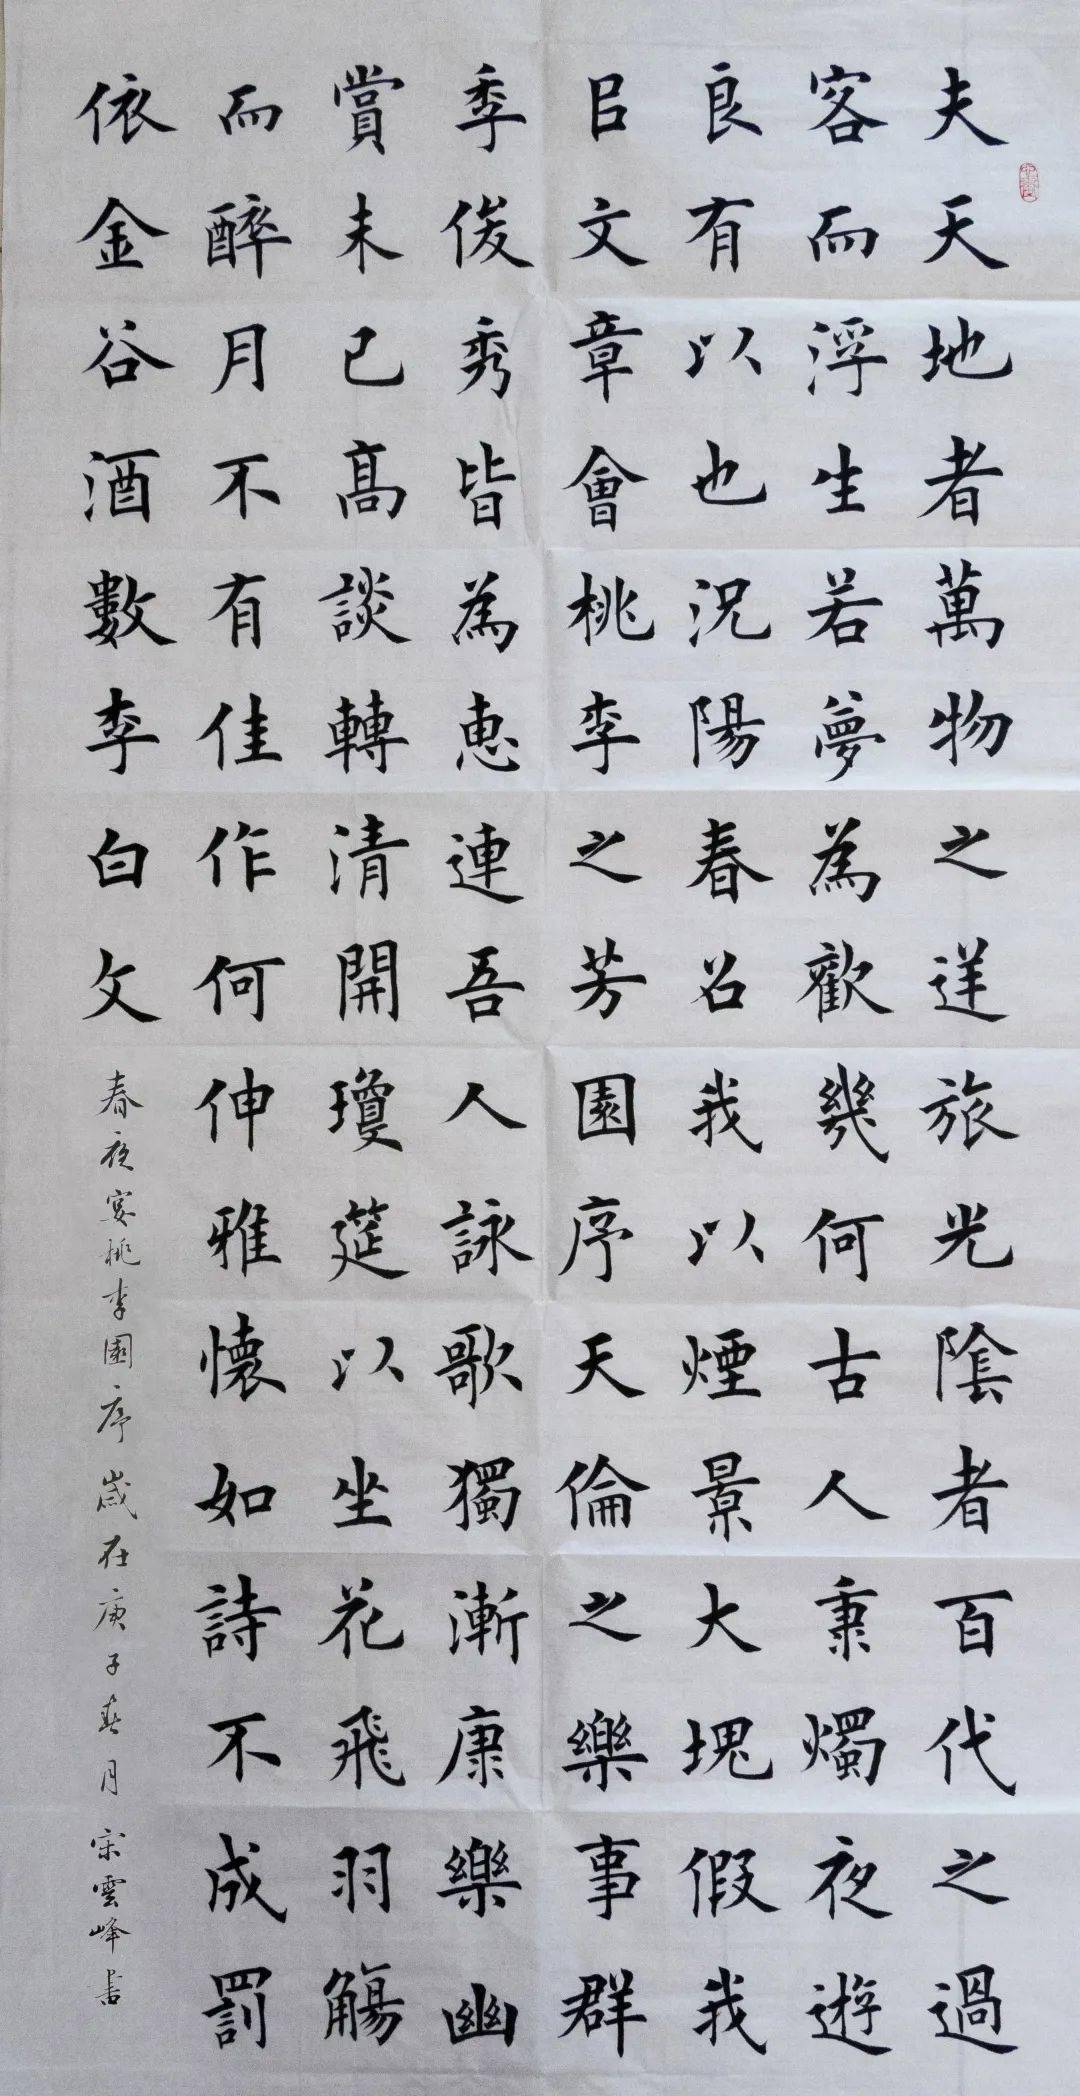 夫天地者萬物之逆旅光陰者百代之過
客而浮生若夢為歡幾何古人秉燭夜遊
良有以也況陽春召我以煙景大塊假我
㠯文章會桃李之芳園序天倫之樂事群
季俊秀皆為惠連吾人詠歌獨漸康樂幽
賞未已髙談轉清開瓊筵以坐花飛羽觴
而醉月不有佳作何伸雅懷如詩不成罰
依金谷酒數李白文
春夜宴桃李園序歲在庚子春月宋雲峰書